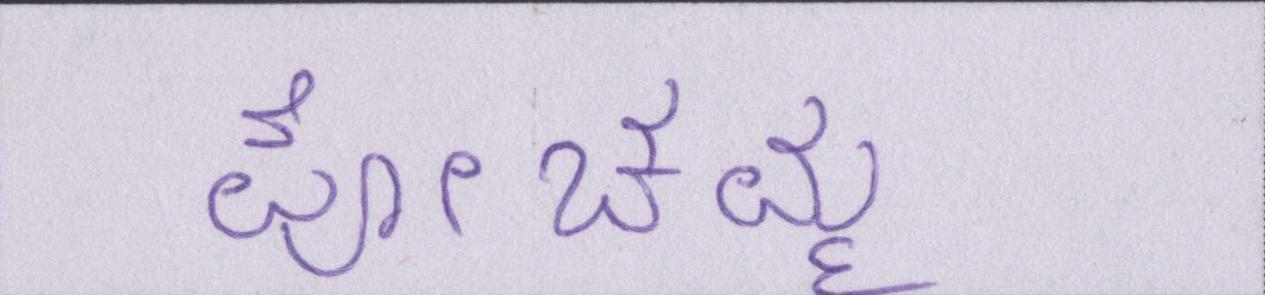 ಪೋಚಮ್ಮ